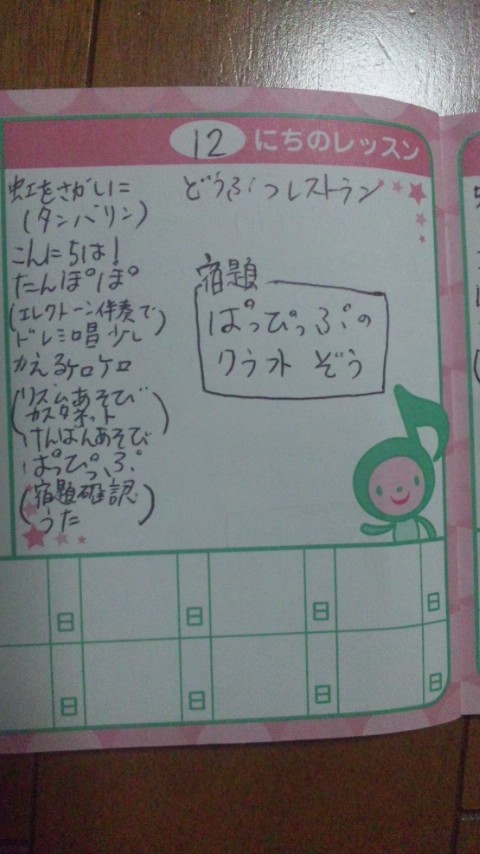 12 にちのレッスン
虹をさがしに
(タンバリン)
こんにちは!
たんぽぽ
(エレクトーン伴奏で
ドレミ唱少し)
かえるケロケロ
(リズムあそび
カスタネット)
けんばんあそび
ぱっぴぷっぷ
(宿題確認
うた)
どうぶつレストラン
宿題
ぱっぴぷっぷの
クラフト ぞう
日 日 日 日
日 日 日 日